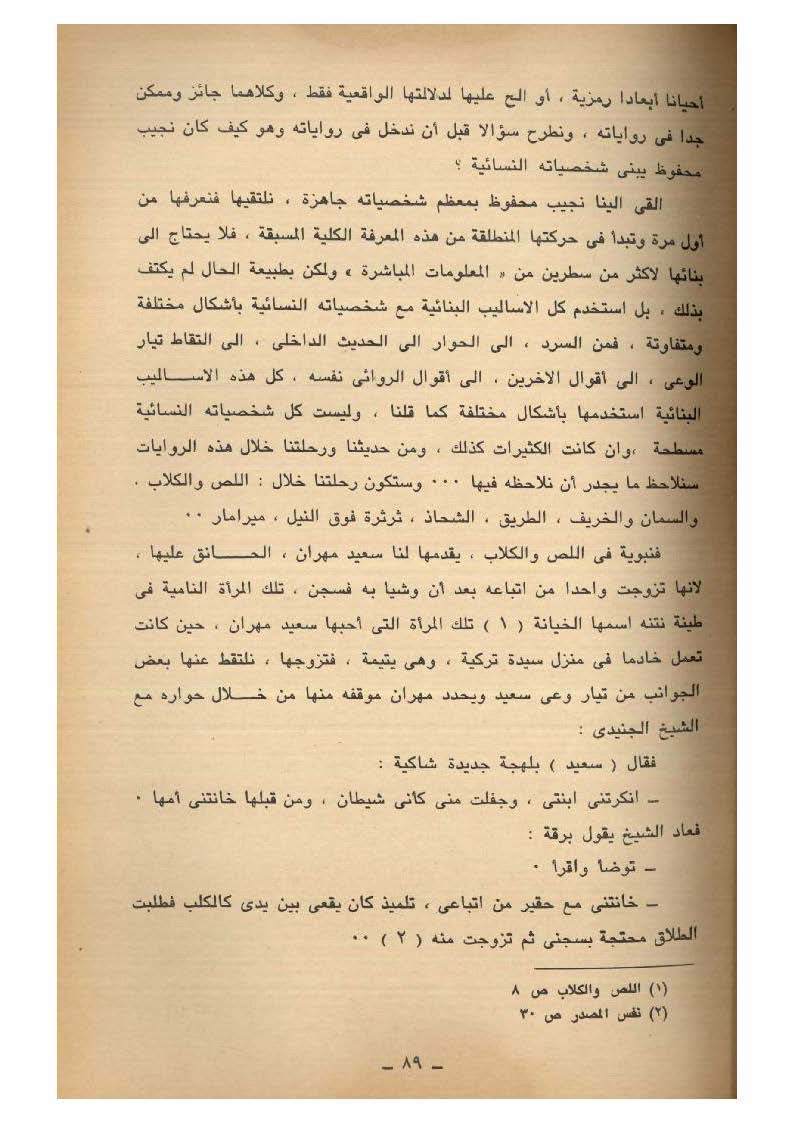 أحيانا أبعادا رمزية ، أو الح عليها لدلالتها الواقعية فقط ، وكلاهما جائز وممكن
جدا فى رواياته ، ونطرح سؤالا قبل أن ندخل فى رواياته وهو كيف كان نجيب
محفوظ يبنى شخصياته النسائية ؟
القى الينا نجيب محفوظ بمعظم شخصياته جاهزة ، نلتقيها فنعرفها من
أول مرة وتبدأ فى حركتها المنطلقة من هذه المعرفة الكلية المسبقة ، فلا يحتاج الى
بنائها لاكثر من سطرين من « المعلومات المباشرة » ولكن بطبيعة الحال لم يكتف
بذلك ، بل استخدم كل الاساليب البنائية مع شخصياته النسائية بأشكال مختلفة
ومتفاوتة ، فمن السرد ، الى الحوار الى الحديث الداخلى ، الى التقاط تيار
الوعى ، الى أقوال الاخرين ، الى أقوال الروائى نفسه ، كل هذه الاســـاليب
البنائية استخدمها بأشكال مختلفة كما قلنا ، وليست كل شخصياته النسائية
مسطحة ،وان كانت الكثيرات كذلك ، ومن حديثنا ورحلتنا خلال هذه الروايات
سنلاحظ ما يجدر أن نلاحظه فيها ٠٠٠ وستكون رحلتنا خلال : اللص والكلاب ،
والسمان والخريف ، الطريق ، الشحاذ ، ثرثرة فوق النيل ، ميرامار ٠٠
فنبوية فى اللص والكلاب ، يقدمها لنا سعيد مهران ، الحـــانق عليها ،
لانها تزوجت واحدا من اتباعه بعد أن وشيا به فسجن ، تلك المرأة النامية فى
طينة نتنه اسمها الخيانة ( ١ ) تلك المرأة التى أحبها سعيد مهران ، حين كانت
تعمل خادما فى منزل سيدة تركية ، وهى يتيمة ، فتزوجها ، نلتقط عنها بعض
الجوانب من تيار وعى سعيد ويحدد مهران موقفه منها من خـــلال حواره مع
الشيخ الجنيدى :
فقال ( سعيد ) بلهجة جديدة شاكية :
– انكرتنى ابنتى ، وجفلت منى كأنى شيطان ، ومن قبلها خانتنى أمها ٠
فعاد الشيخ يقول برقة :
– توضأ واقرأ ٠
– خانتنى مع حقير من اتباعى ، تلميذ كان يقعى بين يدى كالكلب فطلبت
الطلاق محتجة بسجنى ثم تزوجت منه ( ٢ ) ٠٠
(١) اللص والكلاب ص ٨
(٢) نفس المصدر ص ٣٠
– ٨٩ –